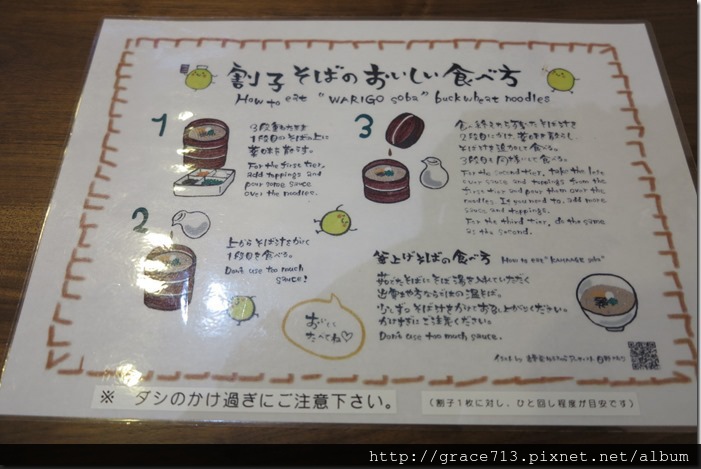 割子そばのおいしい食べ方
How to eat "WARIGO soba" buckwheat noodles
1
3段重ねのまま
1段目のそばの上に
薬味を散らす。
For the first tier,
add toppings and
pour some sauce
over the noodles.
2
上からそば汁をかけて
1段目を食べる。
Don't use too much
sauce!
3
食べ終えたら残ったそば汁を
2段目にかけ、薬味を散らし、
そば汁を追加して食べる。
3段目も同様にして食べる。
For the second tier, take the
over sauce and toppings from the
first tier and pour them over the
noodles. If you need to, add more
sauce and toppings.
For the third tier, do the same
as the second.
おいしく
たべてね♡
釜上げそばの食べ方 How to eat "KAMAAGE soba"
茹でたそばにそば湯を入れていただく
出雲地方ならではの温そば。
少しずつそば汁をかけてお召し上がりください。
かけすぎにご注意ください。
Don't use too much sauce.
※ ダシのかけ過ぎにご注意下さい。
(割子1枚に対し、ひと回し程度が目安です)
http://grace713.pixnet.net/album